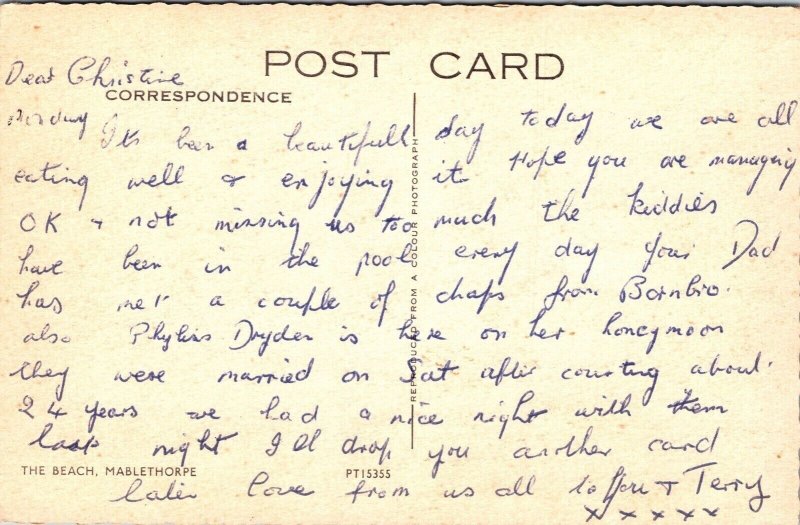 POST CARD
Dear Christine
CORRESPONDENCE
Monday Its been a beautifull day today we are all
eating well & enjoying it Hope you are managing
OK & not missing us too much the kiddies
have been in the pool every day your Dad
has met a couple of chaps from Bornbro.
also Phyliss Dryden is here on her honeymoon
they were married on Sat after courting about
24 years we had a nice night with them
last night I'll drop you another card
later love from us all to you & Terry
x x x x x
REPRODUCED FROM A COLOUR PHOTOGRAPH
THE BEACH, MABLETHORPE
PT15355